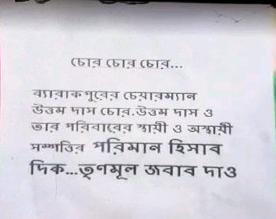 চোর চোর চোর...
ব্যারাকপুরের চেয়ারম্যান
উত্তম দাস চোর.উত্তম দাস ও
তার পরিবারের স্থায়ী ও অস্থায়ী
সম্পত্তির পরিমান হিসাব
দিক...তৃণমূল জবাব দাও